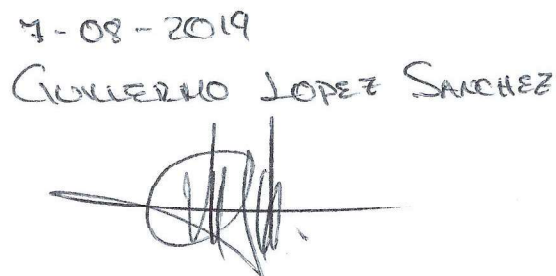 7-08-2019
GUILLERMO LOPEZ SANCHEZ